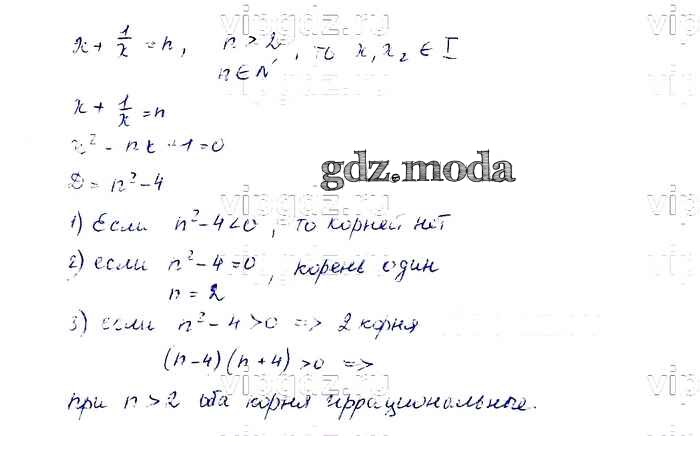 x + 1/x = n, n > 2, n ∈ N, то x₁, x₂ ∈ I
x + 1/x = n
x² - nx + 1 = 0
D = n² - 4
gdz.moda
1) Если n² - 4 < 0, то корней нет
2) если n² - 4 = 0, корень один
n = 2
3) если n² - 4 > 0 => 2 корня
(n - 4)(n + 4) > 0 =>
при n > 2 оба корня иррациональные.
vipgdz.ru